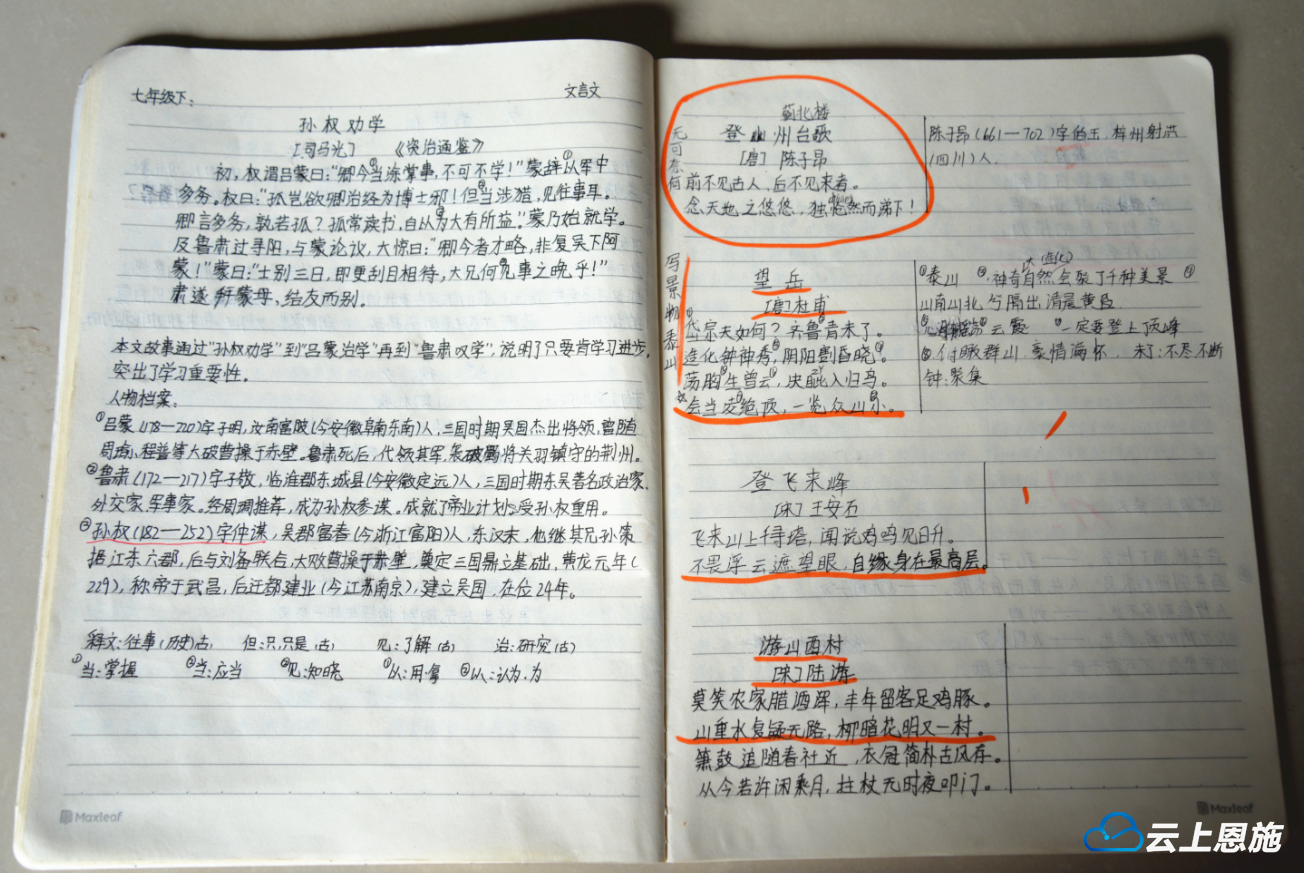 七年级下: 文言文
孙权劝学
[司马光] 《资治通鉴》
初,权谓吕蒙曰:"卿今当涂掌事,不可不学!"蒙辞①以军中
多务。权曰:"孤岂欲卿治经为博士邪!但当涉猎,见往事耳。
卿言多务,孰若孤?孤常读书,自以为大有所益。"蒙乃始就学。
及鲁肃过寻阳,与蒙论议,大惊曰:"卿今者才略,非复吴下阿
蒙!"蒙曰:"士别三日,即更刮目相待,大兄何见事之晚乎!"
肃遂拜蒙母,结友而别。
本文故事通过"孙权劝学"到"吕蒙治学"再到"鲁肃叹学",说明了只要肯学习进步,
突出了学习重要性。
人物档案:
①吕蒙(178—220)字子明,汝南富陂(今安徽阜南东南)人,三国时期吴国杰出将领,曾随
周瑜,程普等大破曹操于赤壁。鲁肃死后,代领其军,袭破蜀将关羽镇守的荆州。
②鲁肃(172—217)字子敬,临淮郡东城县(今安徽定远)人,三国时期东吴著名政治家
外交家,军事家。经周瑜推荐,成为孙权参谋。成就了帝业计划,受孙权重用。
③孙权(182—252)字仲谋,吴郡富春(今浙江富阳)人,东汉末,他继其兄孙策
据江东六郡,后与刘备联合,大败曹操于赤壁,奠定三国鼎立基础,黄龙元年(
229),称帝于武昌,后迁都建业(今江苏南京),建立吴国,在位24年。
释文:往事(历史)(古) 但:只,只是(古) 见:了解(古) 治:研究(古)
①当:掌握 ②当:应当 ②见:知晓 ①以:用,拿 ②以:认为,为
蓟北楼
登幽州台歌
[唐] 陈子昂
无可奈何
前不见古人,后不见来者。
念天地之悠悠,独怆然而涕下!
陈子昂(661—702)字伯玉,梓州射洪
(四川)人.
写景物泰山
望岳
[唐]杜甫
岱宗夫如何?齐鲁青未了。
造化钟神秀,阴阳割昏晓。
荡胸生曾云,决眦入归鸟。
会当凌绝顶,一览众山小。
①泰山 ②神奇自然会聚了千种美景
(大 造化)
山南山北 分隔出清晨黄昏
云霞 一定要登上顶峰
俯瞰群山 豪情满怀 未了:不尽不断
钟:聚集
登飞来峰
[宋]王安石
飞来山上千寻塔,闻说鸡鸣见日升。
不畏浮云遮望眼,自缘身在最高层。
游山西村
[宋]陆游
莫笑农家腊酒浑,丰年留客足鸡豚。
山重水复疑无路,柳暗花明又一村。
箫鼓追随春社近,衣冠简朴古风存。
从今若许闲乘月,拄杖无时夜叩门。
Maxleaf
Maxleaf
云上恩施